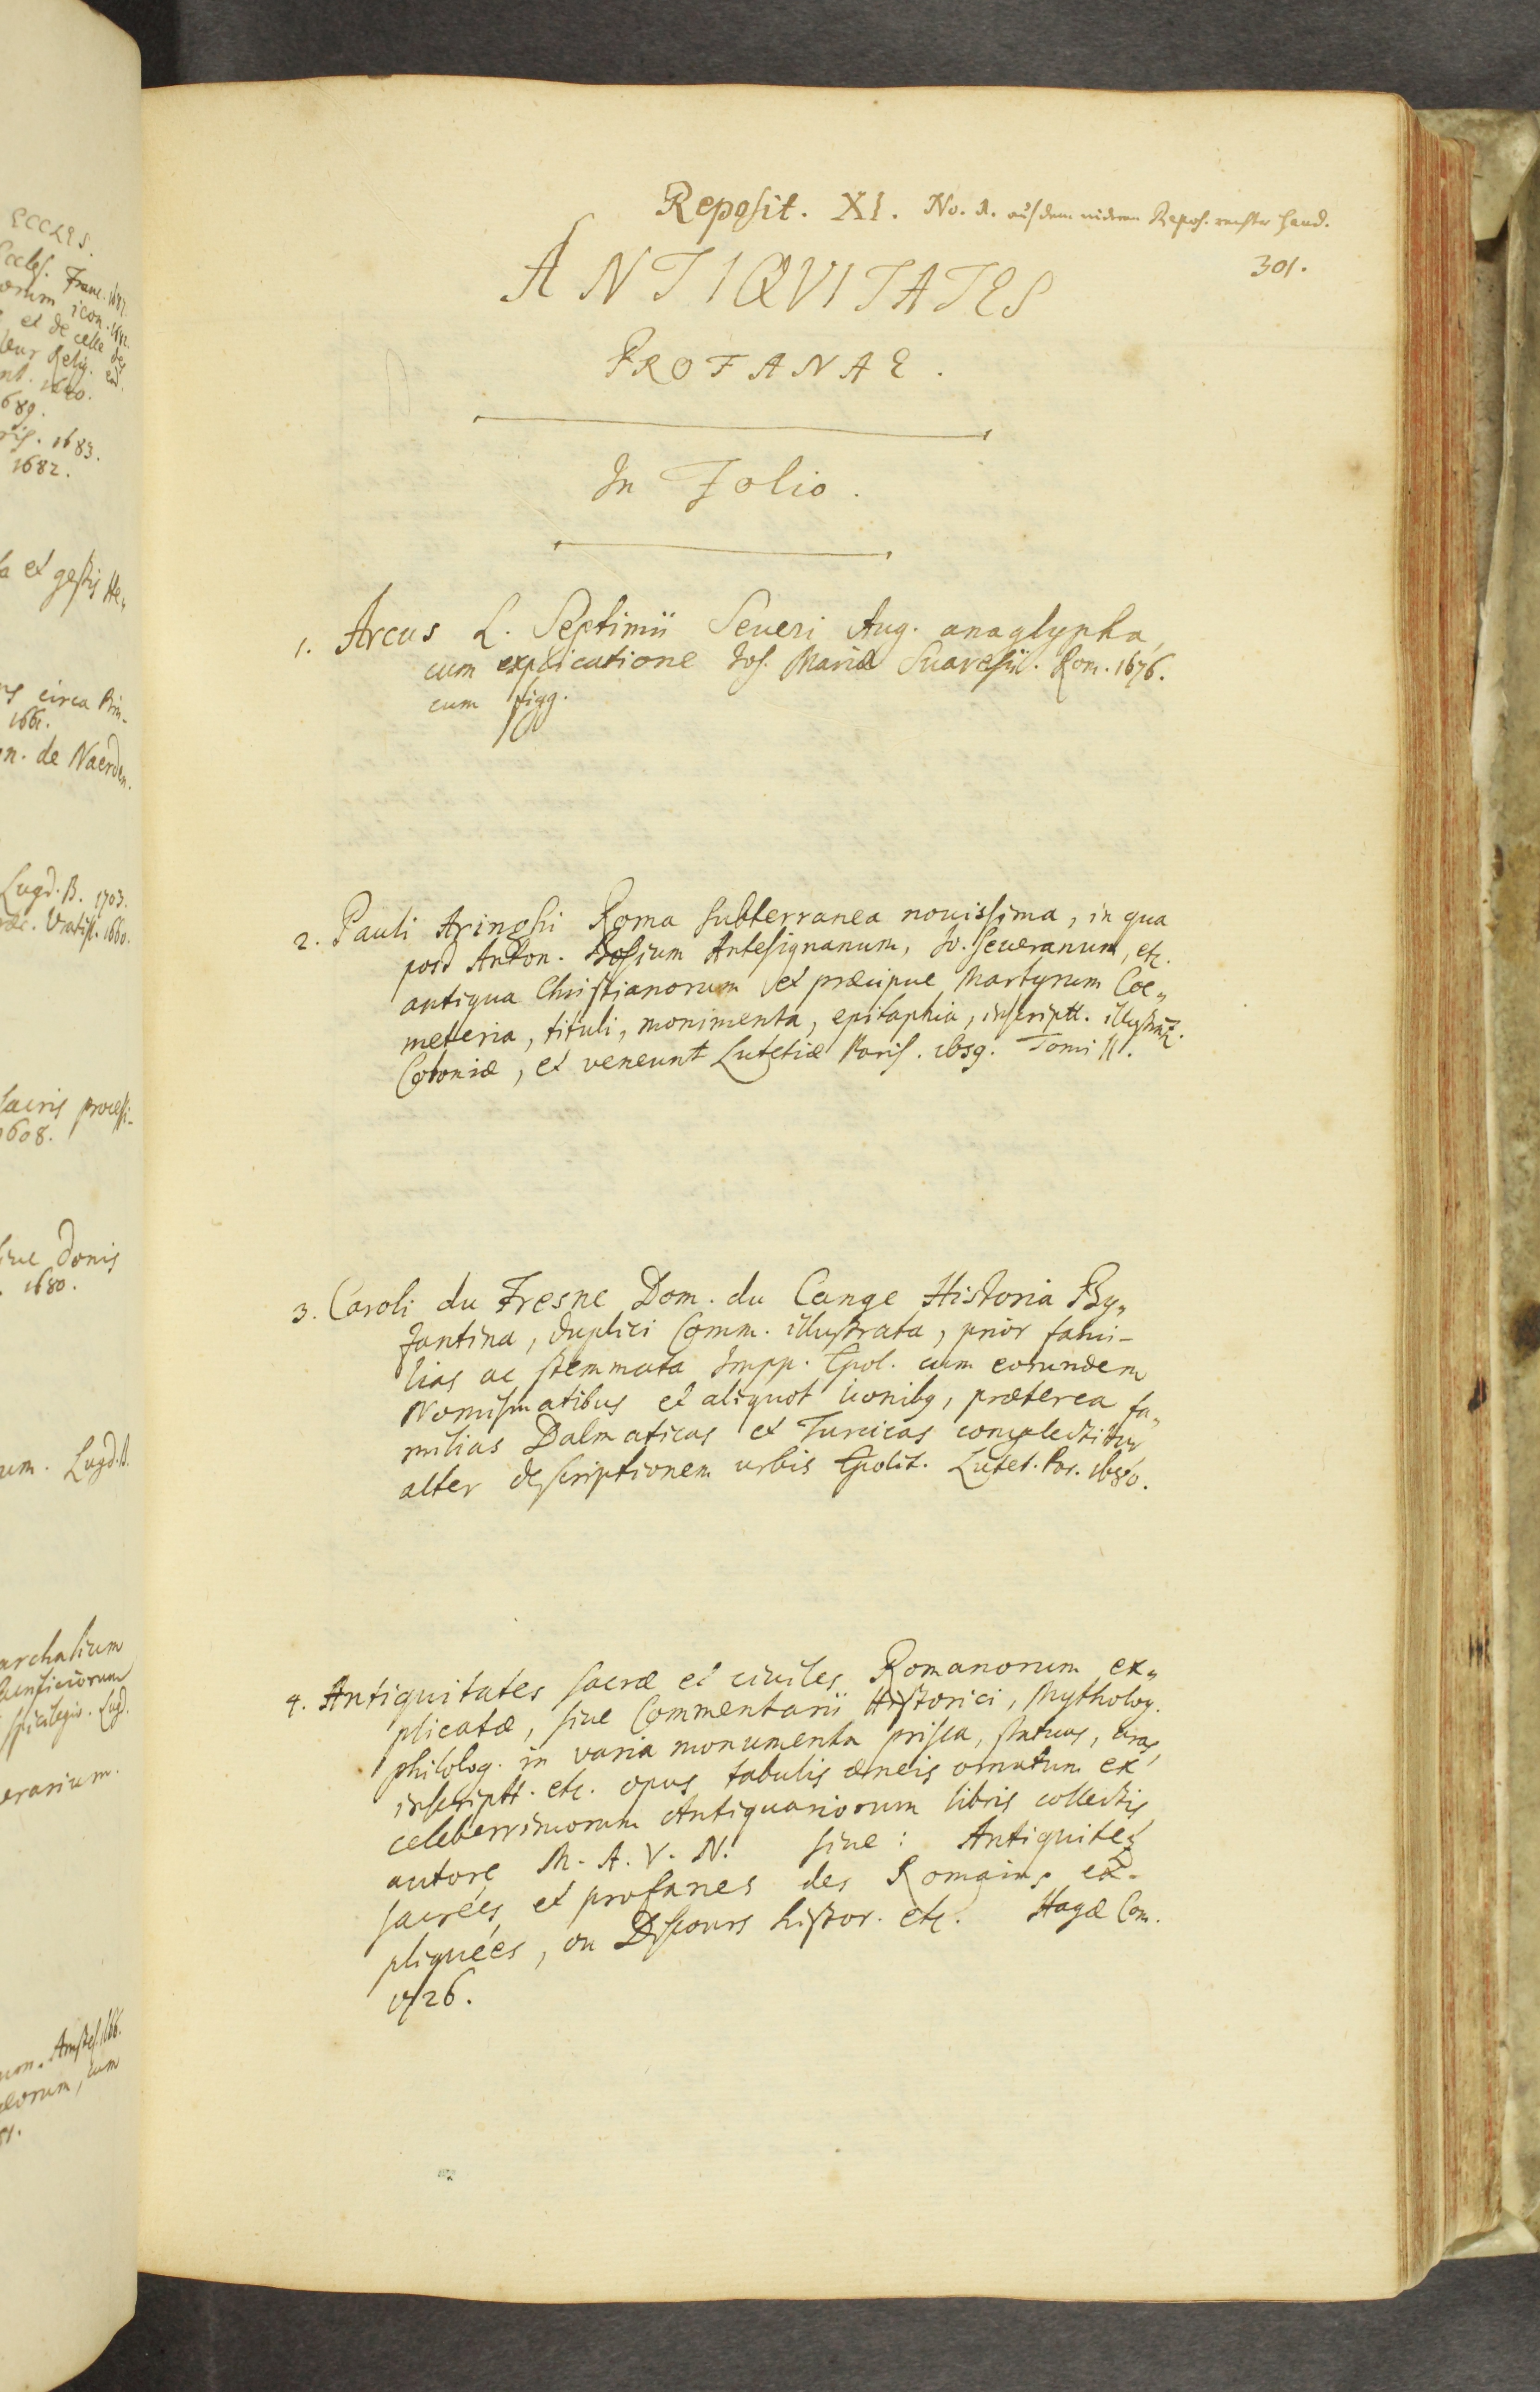 ECCLES.
Eccles. Franc. 1687.
icon. 1682.
et de celle des
leur Relig. ed.
1680.
1689.
1683.
1682.
et gestis He„
circa Prin-
1661.
de Naerden.
Lugd. B. 1703.
Vratisl. 1660.
sacris processi-
1608.
siue donis
1680.
Lugd. B.
spicilegio. Lugd.
Amstel. 166.
cum
81.
Reposit. XI. No. 1. auf dem nideren Repos. rechter Hand.
301.
ANTIQVITATES
PROFANAE.
In Folio.
1. Arcus L. Septimii Seueri Aug. anaglypha,
cum explicatione Jos. Mariæ Suaresii. Rom. 1676.
cum figg.
2. Pauli Aringhi Roma subterranea nouissima, in qua
post Anton. Bosium Antesignanum, Jo. Seueranum, etc.
antiqua Christianorum et præcipue Martyrum Coe„
meteria, tituli, monimenta, epitaphia, inscriptt. illustrātr.
Coloniæ, et veneunt Lutetiæ Paris. 1659. Tomi II.
3. Caroli du Fresne Dom. du Cange Historia By„
zantina, duplici Comm. illustrata, prior fami-
lias ac stemmata Impp. Cpol. cum eorundem
Nomismatibus et aliquot iconibg, præterea fa„
milias Dalmaticas et Turcicas complectitur
alter descriptionem urbis Cpolit. Lutet. Par. 1680.
4. Antiquitates sacræ et ciuiles Romanorum ex„
plicatæ, siue Commentarii Historici, Mytholog.
philolog. in varia monumenta prisca, statuas, aras,
inscriptt. etc. opus tabulis æneis ornatum ex
celeberrimorum Antiquariorum libris collectis
autore M. A. V. N. siue: Antiquités
sacrées et profanes des Romains ex-
pliquées, ou Discours histor. etc. Hagæ Com.
1726.